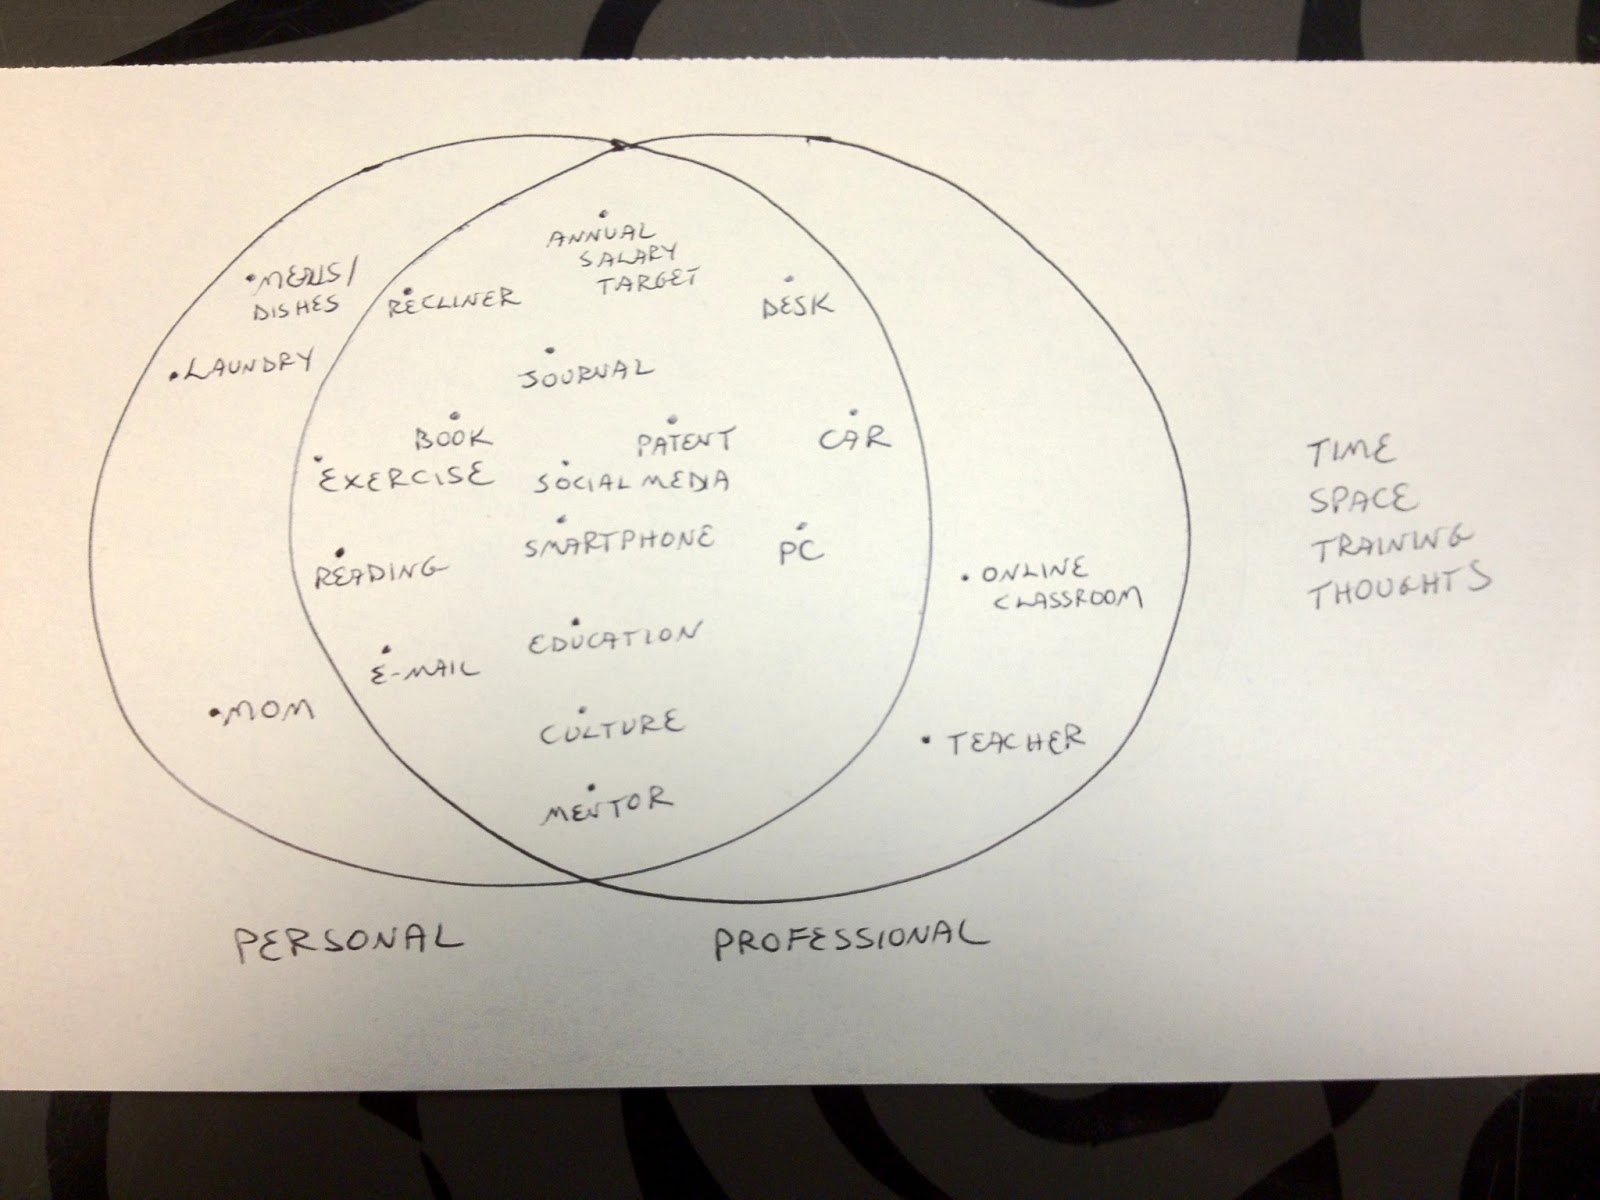 ANNUAL
SALARY
TARGET
MEALS/
DISHES
RECLINER
DESK
LAUNDRY
JOURNAL
BOOK
PATENT
CAR
EXERCISE
SOCIAL MEDIA
SMARTPHONE
PC
READING
ONLINE
CLASSROOM
EDUCATION
E-MAIL
MOM
CULTURE
TEACHER
MENTOR
PERSONAL
PROFESSIONAL
TIME
SPACE
TRAINING
THOUGHTS